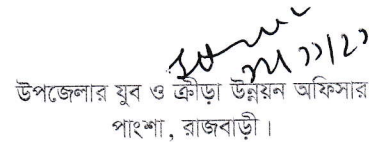 উপজেলার যুব ও ক্রীড়া উন্নয়ন অফিসার
পাংশা, রাজবাড়ী।